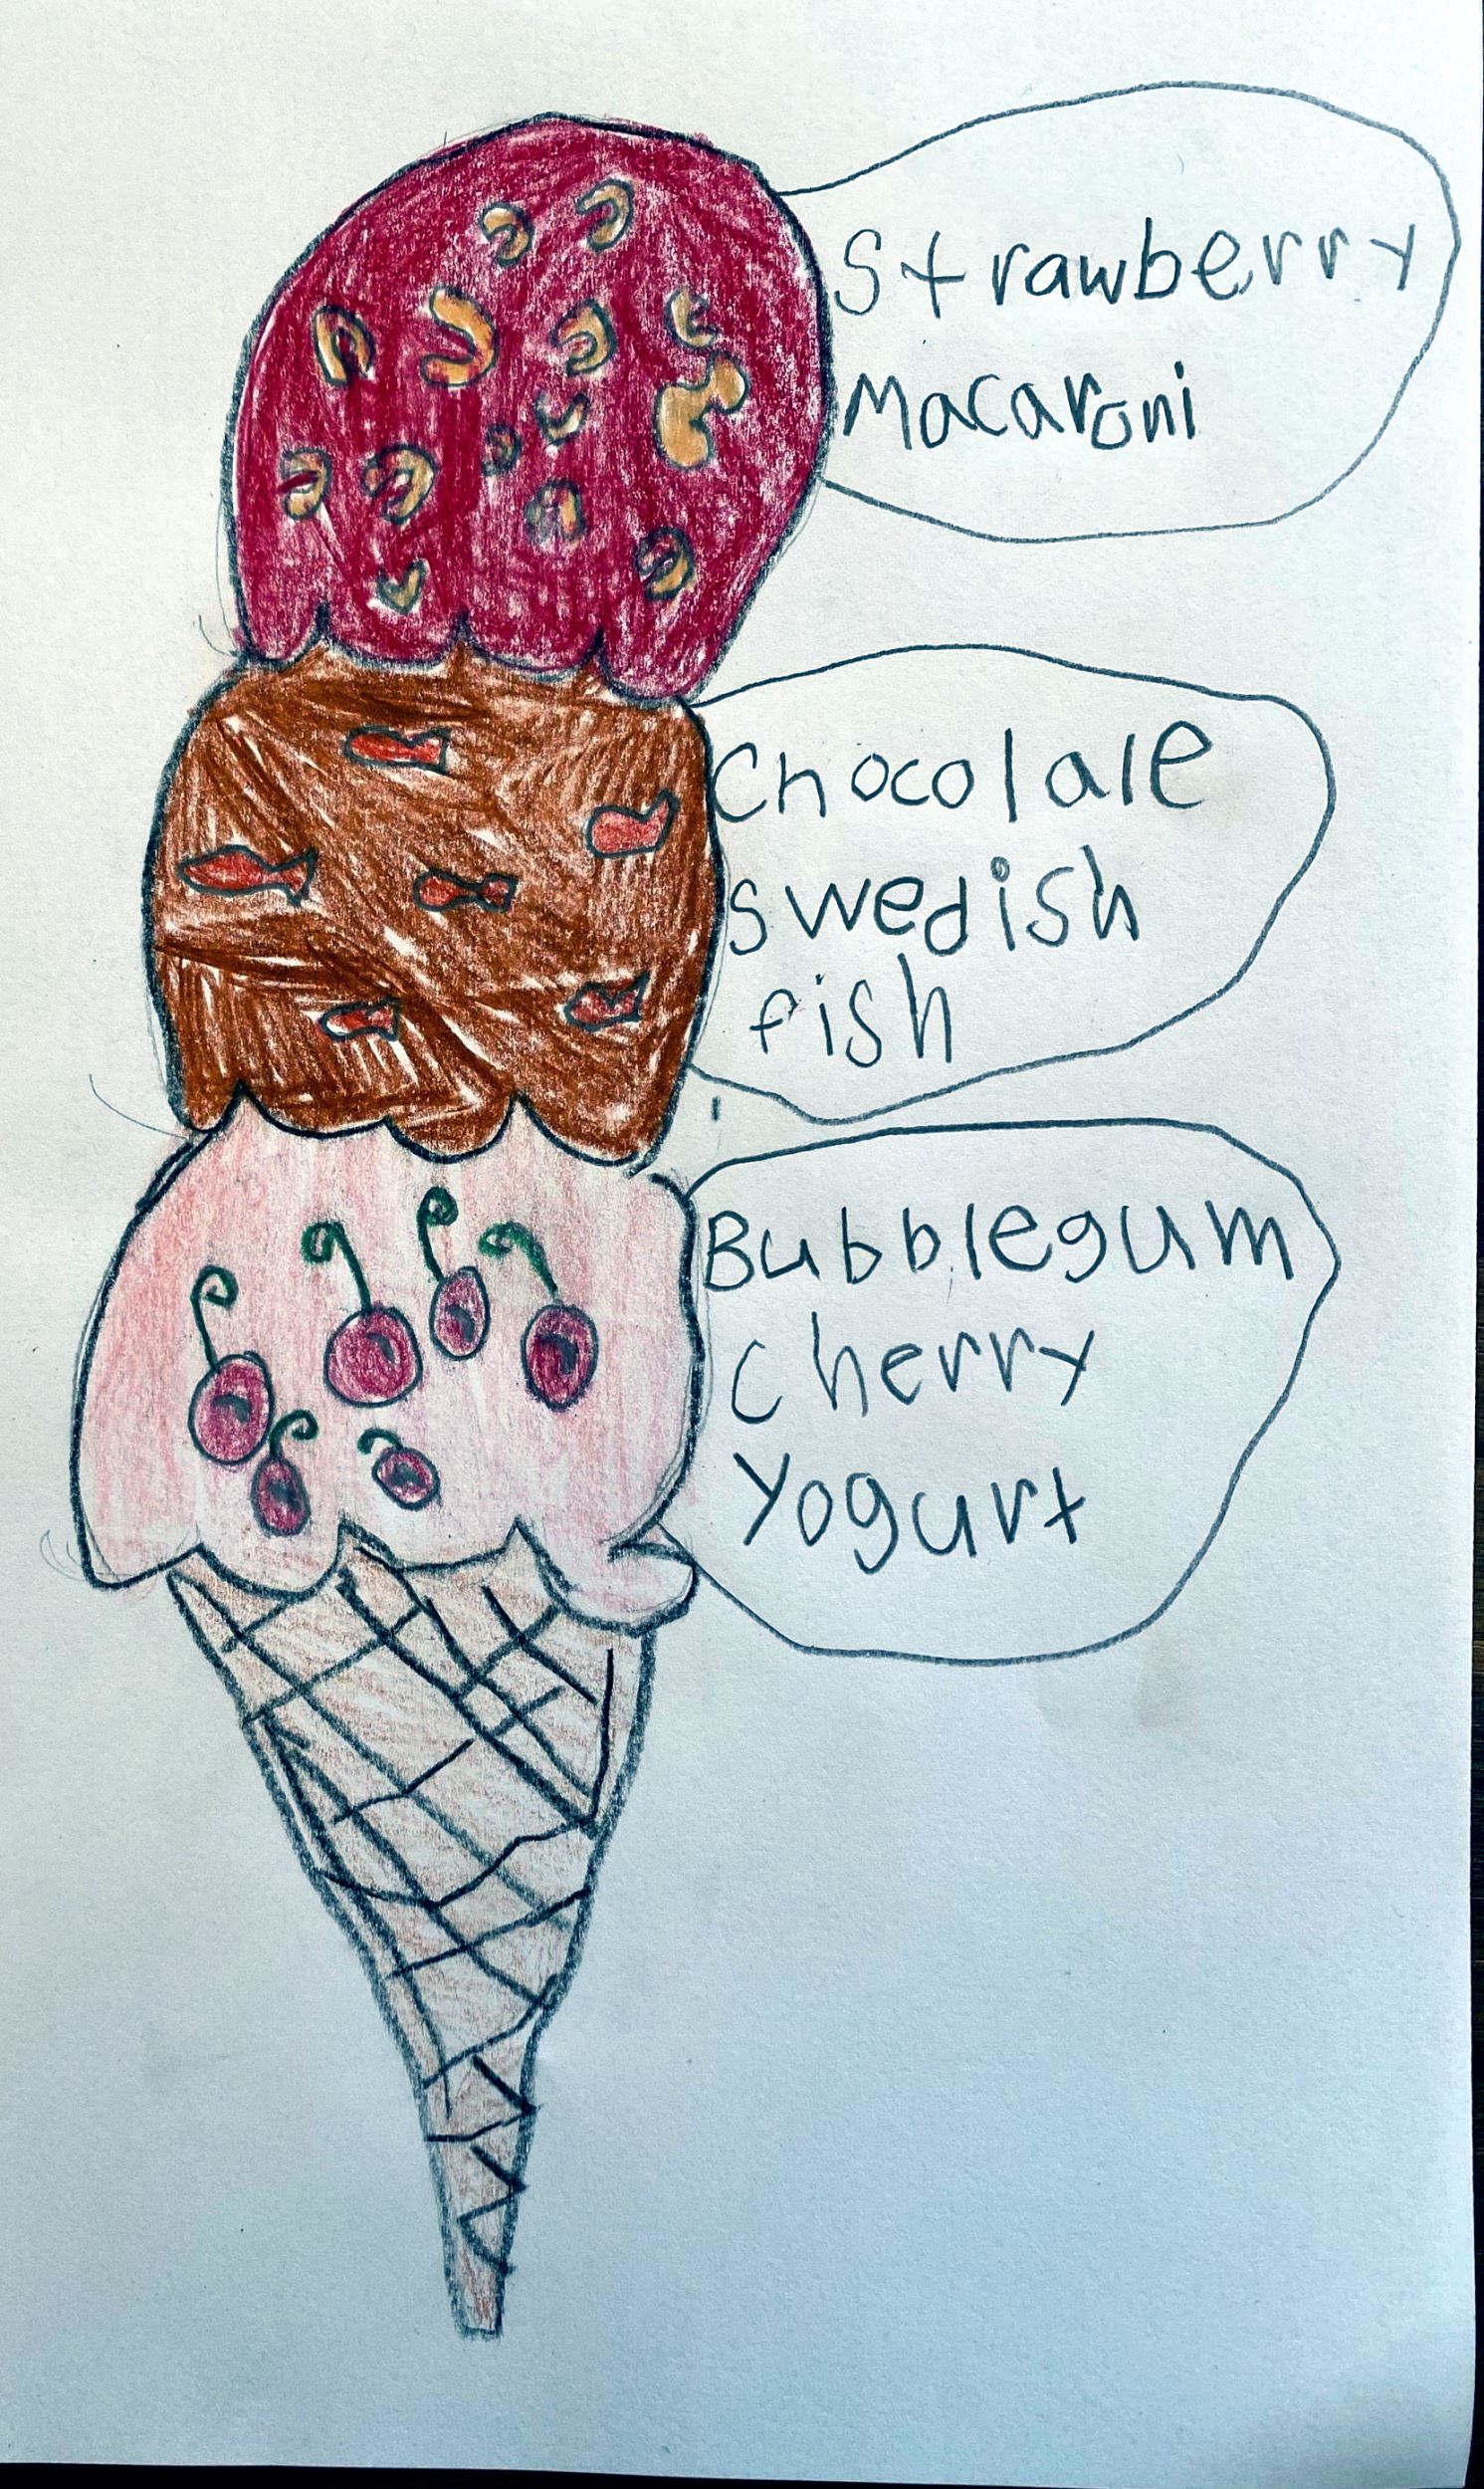 Strawberry
Macaroni
Chocolate
swedish
fish
Bubblegum
cherry
Yogurt